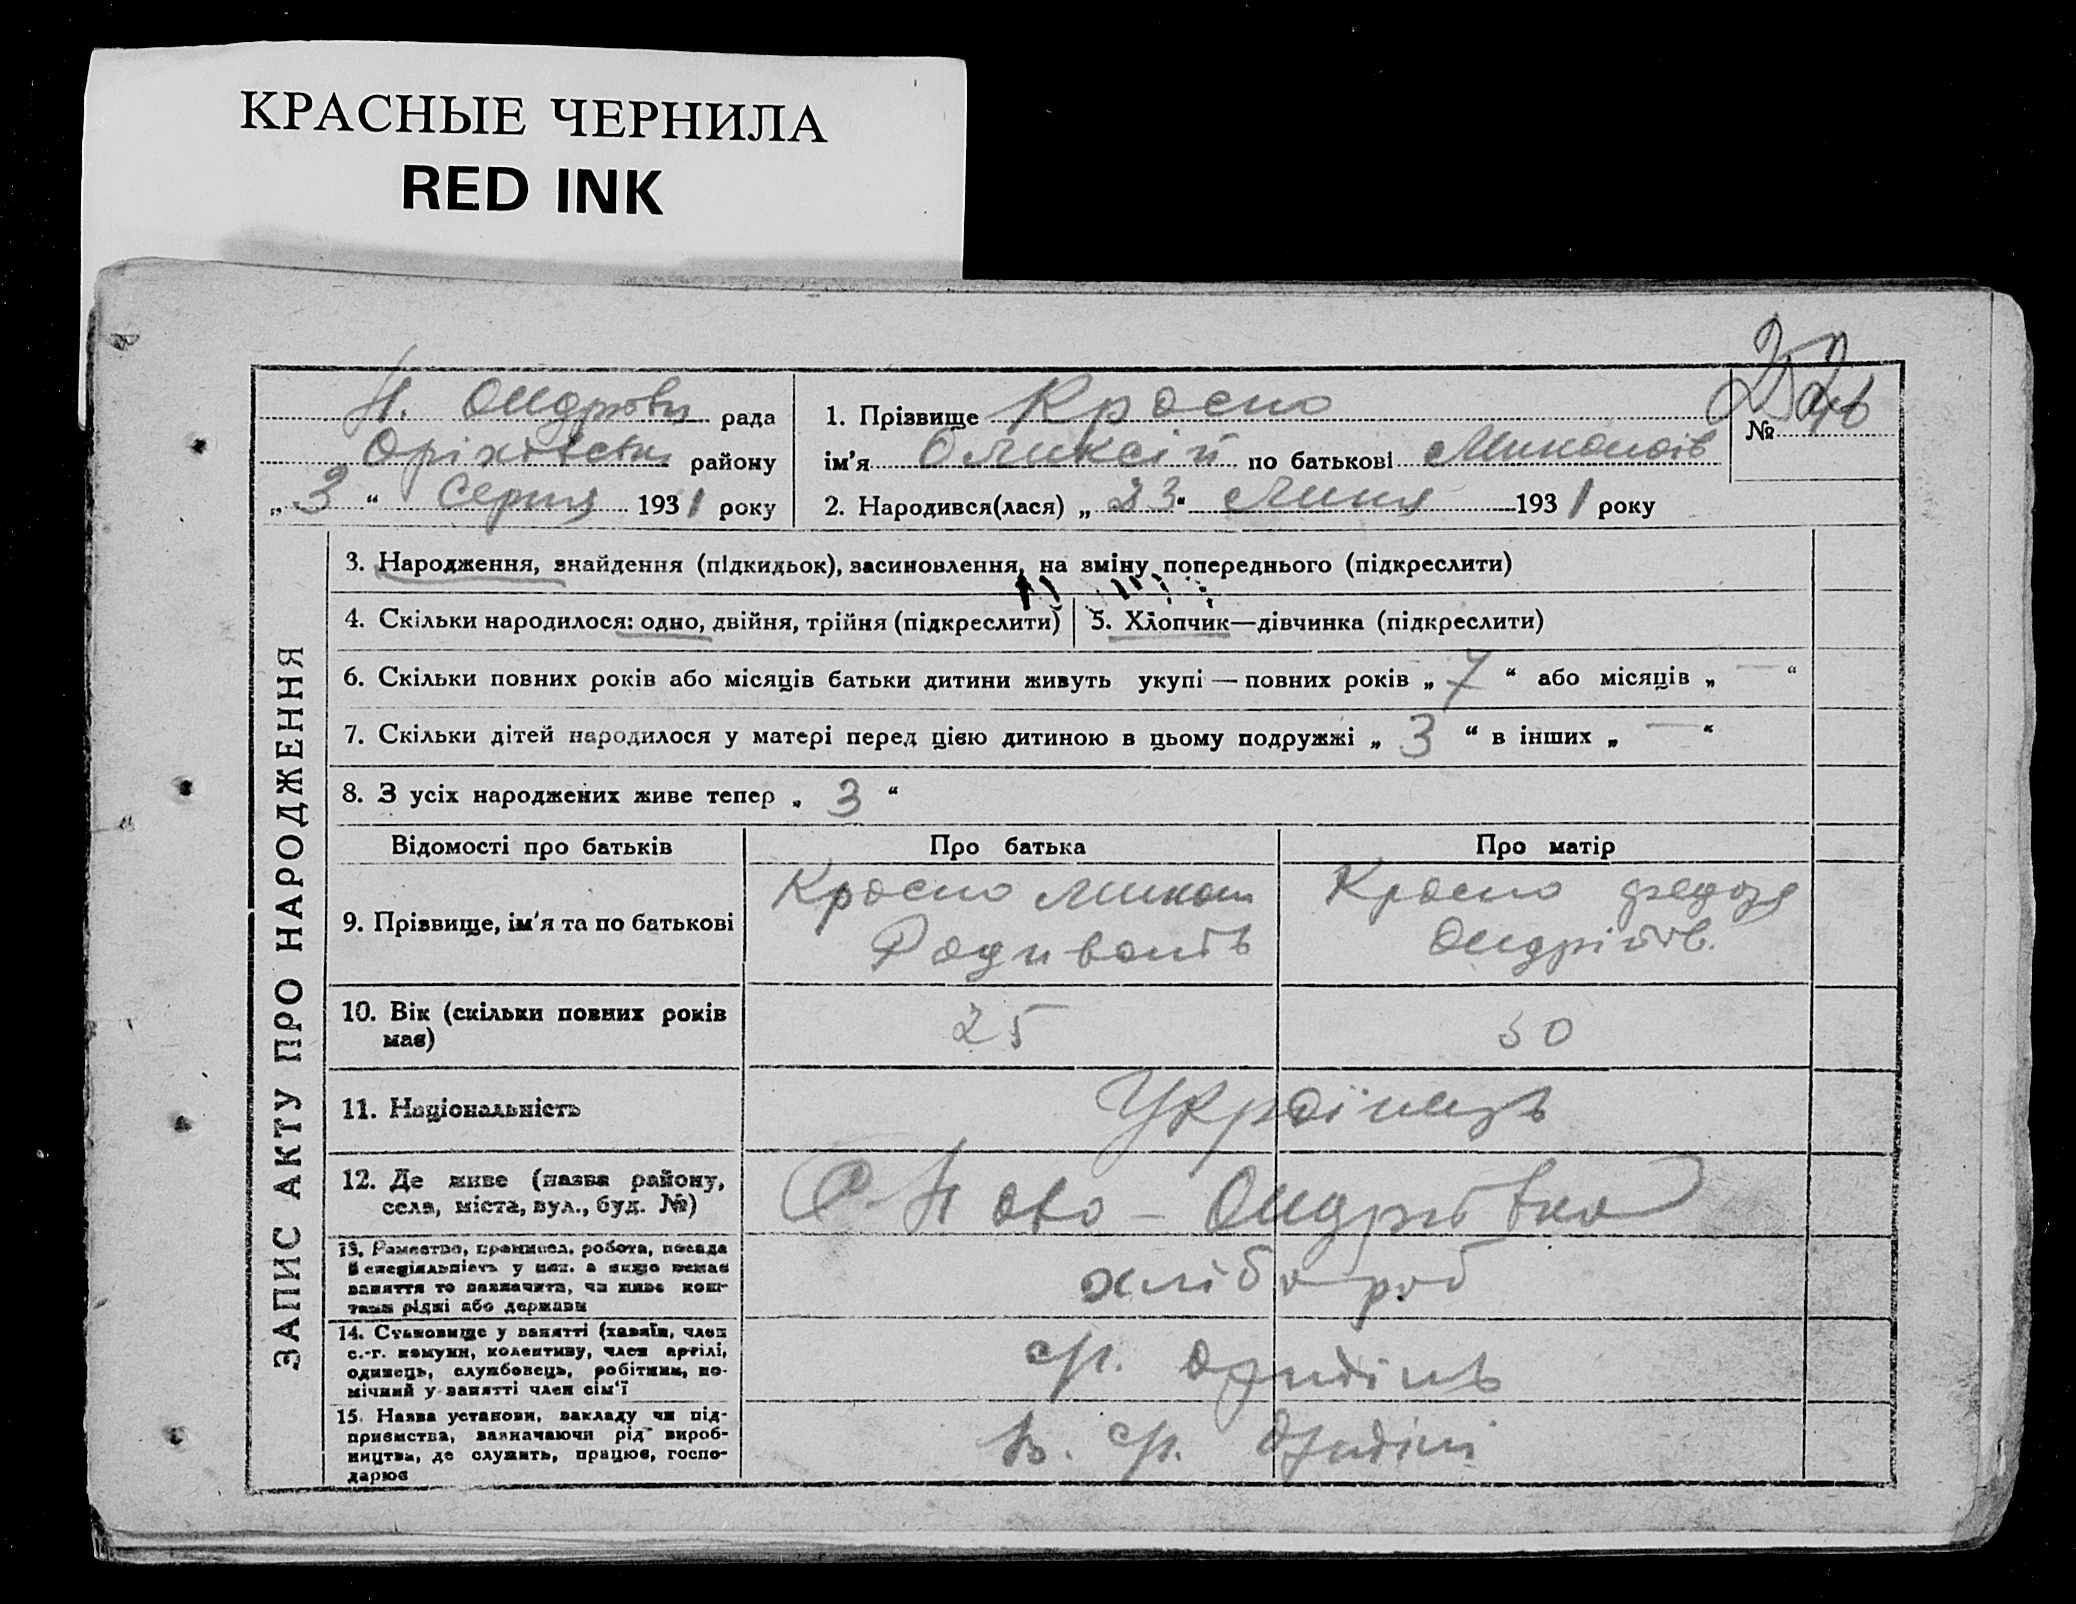 КРАСНЫЕ ЧЕРНИЛА
RED INK
Н. Ондріївка рада
Оріхівськ району
„ 3 “ Серпня 1931 року
1. Прізвище Красно
ім’я Оликсій по батькові Миколаїв
№
2. Народився(лася) „ 23 “ Липня 1931 року
ЗАПИС АКТУ ПРО НАРОДЖЕННЯ
3. Народження, знайдення (підкидьок), засиновлення, на зміну попереднього (підкреслити)
4. Скільки народилося: одно, двійня, трійня (підкреслити)
5. Хлопчик—дівчинка (підкреслити)
6. Скільки повних років або місяців батьки дитини живуть укупі — повних років „ 7 “ або місяців „ — “
7. Скільки дітей народилося у матері перед цією дитиною в цьому подружжі „ 3 “ в інших „ — “
8. З усіх народжених живе тепер „ 3 “
Відомості про батьків
Про батька
Про матір
9. Прізвище, ім’я та по батькові
Красно Микол
Родивонів
Красно Федося
Ондріїв.
10. Вік (скільки повних років
має)
25
30
11. Національність
Українць
12. Де живе (назва району,
села, міста, вул., буд. №)
С. Ново-Ондріївка
13. Ремество, промисел, робота, посада
й спеціяльність у них, а якщо немає
заняття то зазначити, чи живе кош-
тами рідні або держави
хлібороб
14. Становище у занятті (хазяїн, член
с.-г. комуни, колективу, член артілі,
одинець, службовець, робітник, по-
мічний у занятті член сім’ї
ср.
15. Назва установи, закладу чи під-
приємства, зазначаючи рід вироб-
ництва, де служить, працює, госпо-
дарює
в. ср.